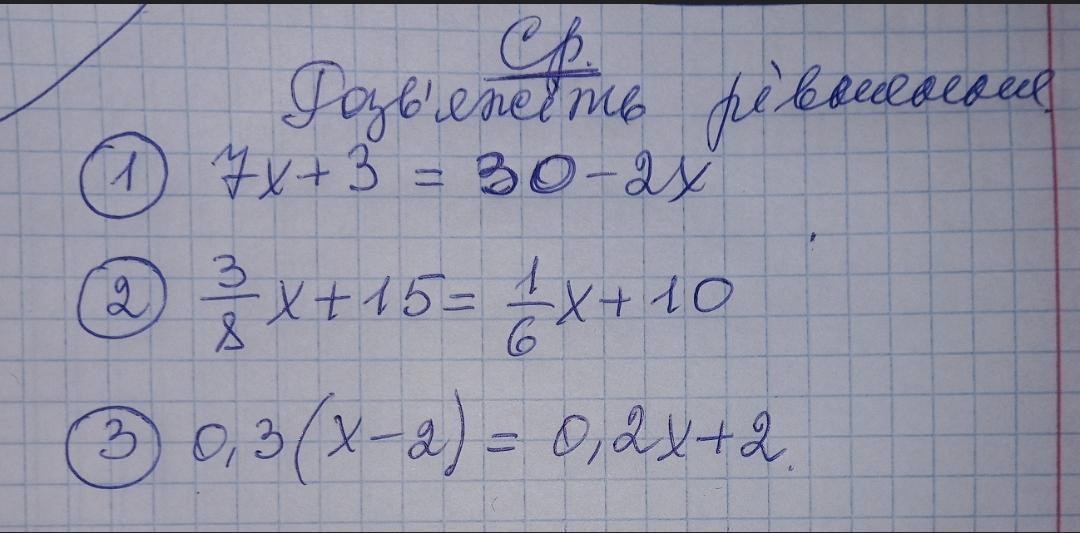 Ср.
Розв'яжіть рівняння
1 7x+3 = 30-2x
2 3/8 x+15= 1/6 x+10
3 0,3(x-2)= 0,2x+2.